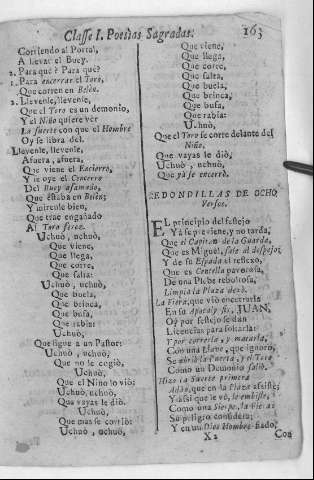 Classe I. Poesias Sagradas. 163
Corriendo al Portal,
A llevar el Buey.
2. Para què? Para què?
1. Para encerrar el Toro,
Que corren en Belèn.
2. Llevenle, llevenle,
Que el Toro es un demonio,
Y el Niño quiere ver
La suerte con que el Hombre
Oy se libra del.
Llevenle, llevenle,
Afuera, afuera,
Que viene el Encierro,
Y se oye el Cencerro
Del Buey afamado,
Que estaba en Belèn;
Y mirenle bien,
Que trae engañado
Al Toro feroz.
Uchuò, uchuò,
Que viene,
Que llega,
Que corre,
Que salta:
Uchuò, uchuò,
Que buela,
Que brinca,
Que bufa,
Que rabia:
Uchuò,
Que sigue a un Pastor:
Uchuò, uchuò,
Que no le cogiò,
Uchuò,
Que el Niño lo viò:
Uchuò, uchuò,
Que vayas le diò.
Uchuò,
Que mas se corriò:
Uchuò, uchuò,
Que viene,
Que llega,
Que corre,
Que salta,
Que buela,
Que brinca,
Que bufa,
Que rabia:
Uchuò,
Que el Toro se corre delante del
Niño,
Que vayas le diò,
Uchuò, uchuò,
Que ya se encerrò.
REDONDILLAS DE OCHO
Versos.
EL principio del festejo
Yà se previene, y no tarda,
Que el Capitan de la Guarda,
Que es Miguèl, sale al despejo:
Y de su Espada el reflexo,
Que es Centella pavorosa,
De una Plebe reboltosa,
Limpia la Plaza dexò.
La Fiera, que viò encerrarla
En su Apocalypsis, JUAN,
Oy por festejo se dan
Licencias para soltarla:
Y por correrla, y matarla,
Con una Llave, que ignoro,
Se abriò la Puerta, y el Toro
Como un Demonio saliò.
Hizo la Suerte primera
Adàn, que en la Plaza assiste;
Y assi que le vè, le embiste,
Como una Sierpe, la Fiera:
Su peligro considera;
Y en un Dios Hombre fiado,
X2 Con